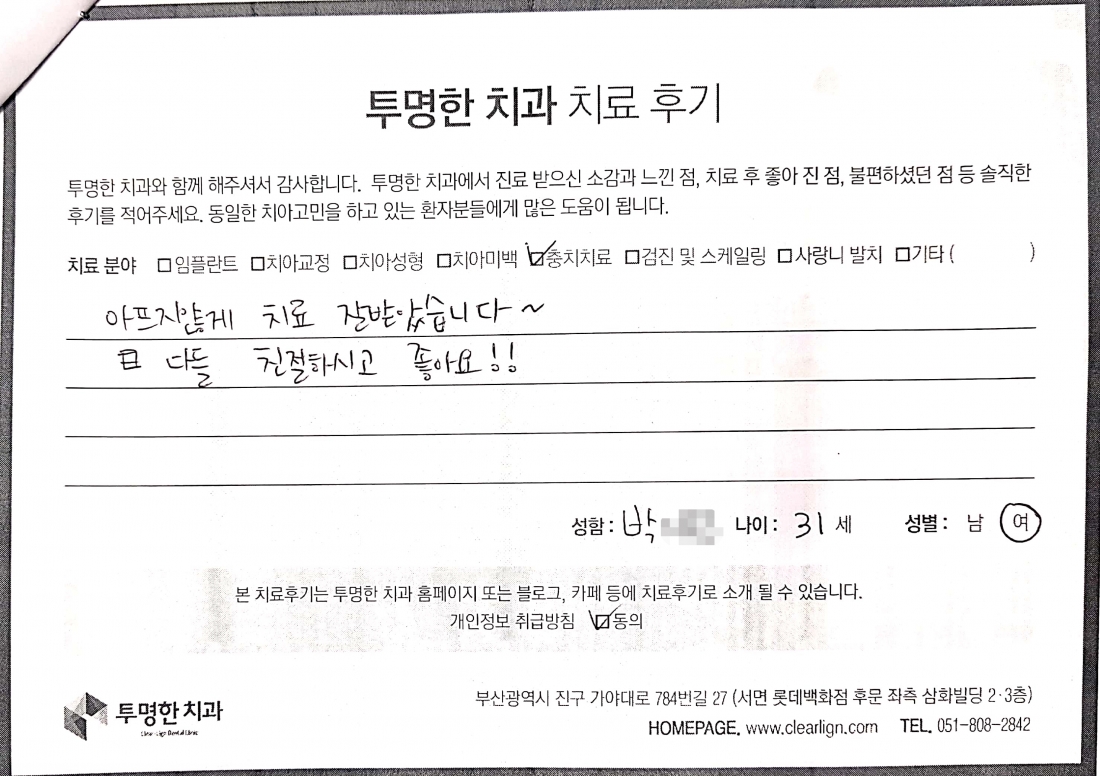 투명한 치과 치료 후기
투명한 치과와 함께 해주셔서 감사합니다. 투명한 치과에서 진료 받으신 소감과 느낀 점, 치료 후 좋아 진 점, 불편하셨던 점 등 솔직한
후기를 적어주세요. 동일한 치아고민을 하고 있는 환자분들에게 많은 도움이 됩니다.
치료 분야 □임플란트 □치아교정 □치아성형 □치아미백 ☑충치치료 □검진 및 스케일링 □사랑니 발치 □기타 ( )
아프지않게 치료 잘받았습니다~
다들 친절하시고 좋아요!!
성함 : 박 나이 : 31 세 성별 : 남 여
본 치료후기는 투명한 치과 홈페이지 또는 블로그, 카페 등에 치료후기로 소개 될 수 있습니다.
개인정보 취급방침 ☑동의
투명한 치과
부산광역시 진구 가야대로 784번길 27 (서면 롯데백화점 후문 좌측 삼화빌딩 2·3층)
HOMEPAGE. www.clearlign.com TEL. 051-808-2842